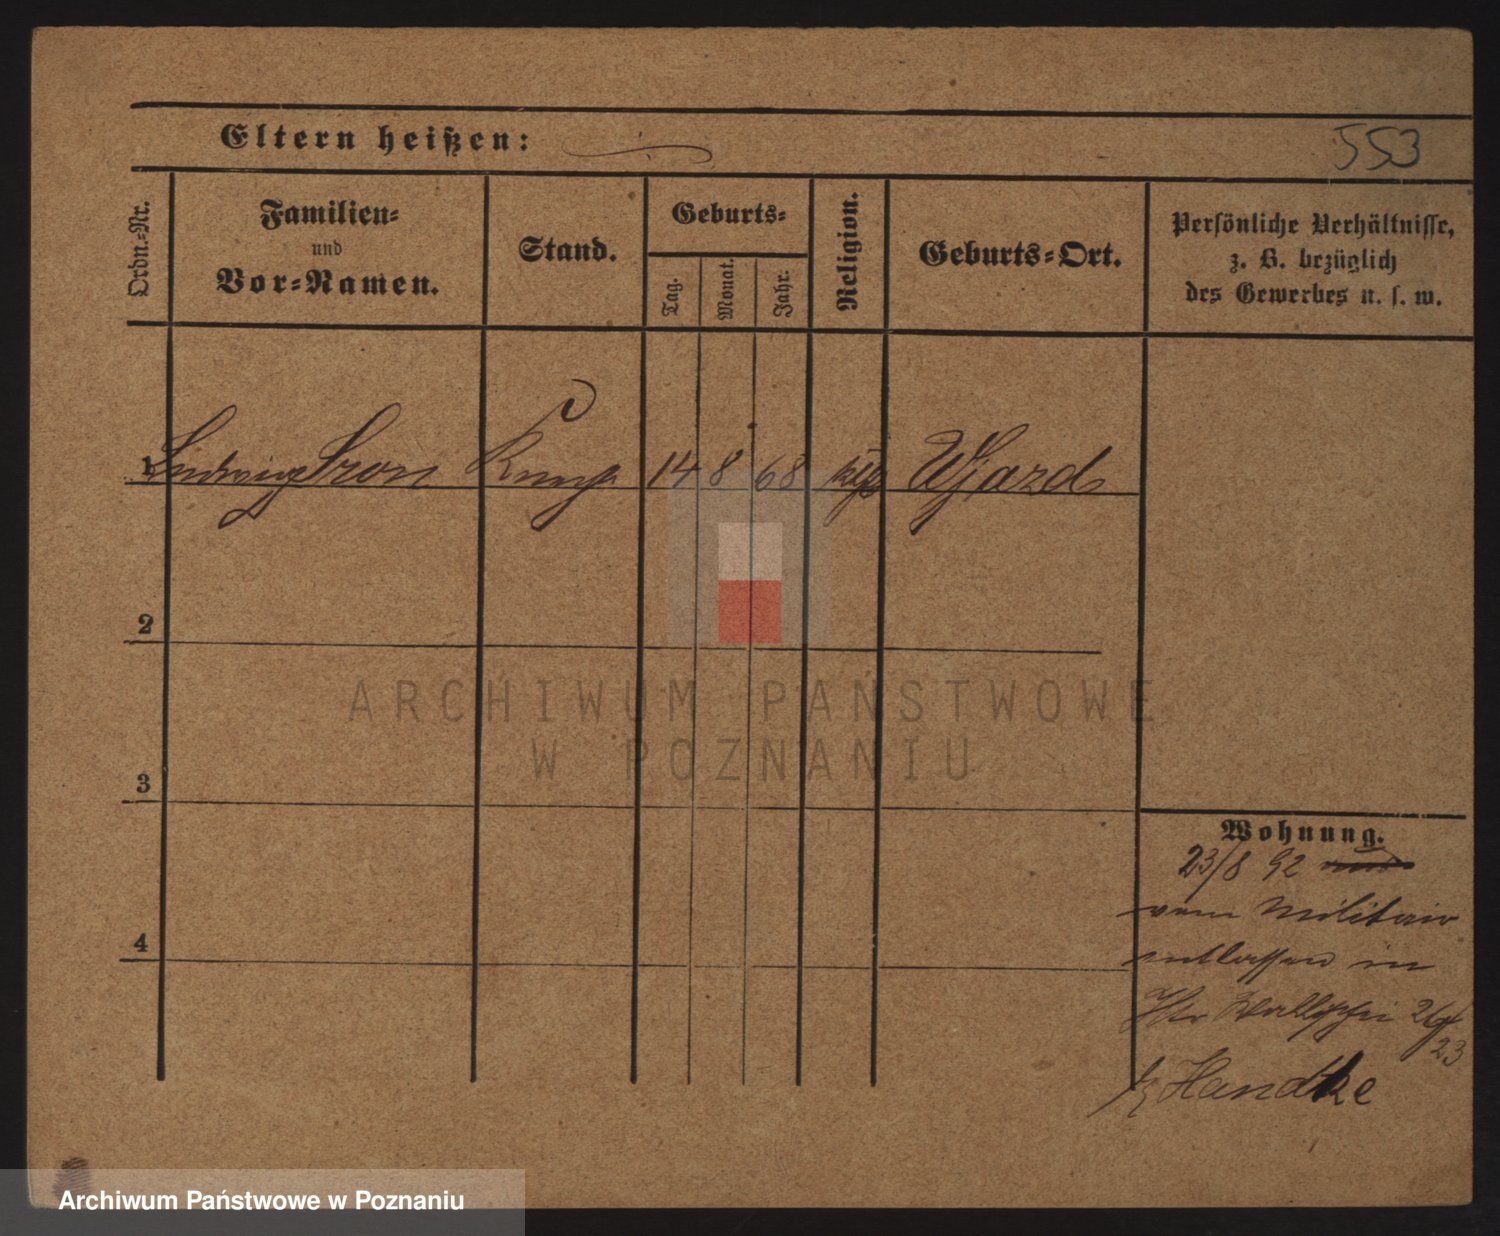 Eltern heißen:
553
Ordn.-Nr.
Familien-
und
Vor-Namen.
Stand.
Geburts-
Tag.
Monat.
Jahr.
Religion.
Geburts-Ort.
Persönliche Verhältnisse,
z. B. bezüglich
des Gewerbes u. s. w.
1 Ludwig 14 8 68 Ujazd
2
3
4
Wohnung.
23/8 92
vom Militair
entlassen in
Wallischei
23
Handke
ARCHIWUM PAŃSTWOWE
W POZNANIU
Archiwum Państwowe w Poznaniu